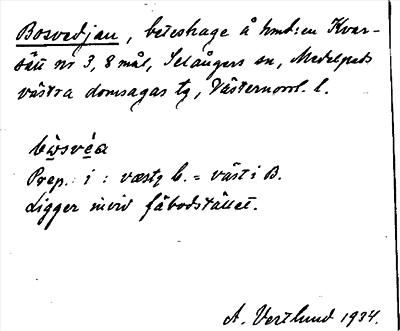 Bosvedjan, beteshage å hmb:en Kvar-
sätt nr 3, 8 mål, Selångers sn, Medelpads
västra domsagas tg, Västernorrl. l.
bὼsvéa
Prep. i : væstj b. = väst i B.
Ligger invid fäbodstället.
A. Vestlund 1934.